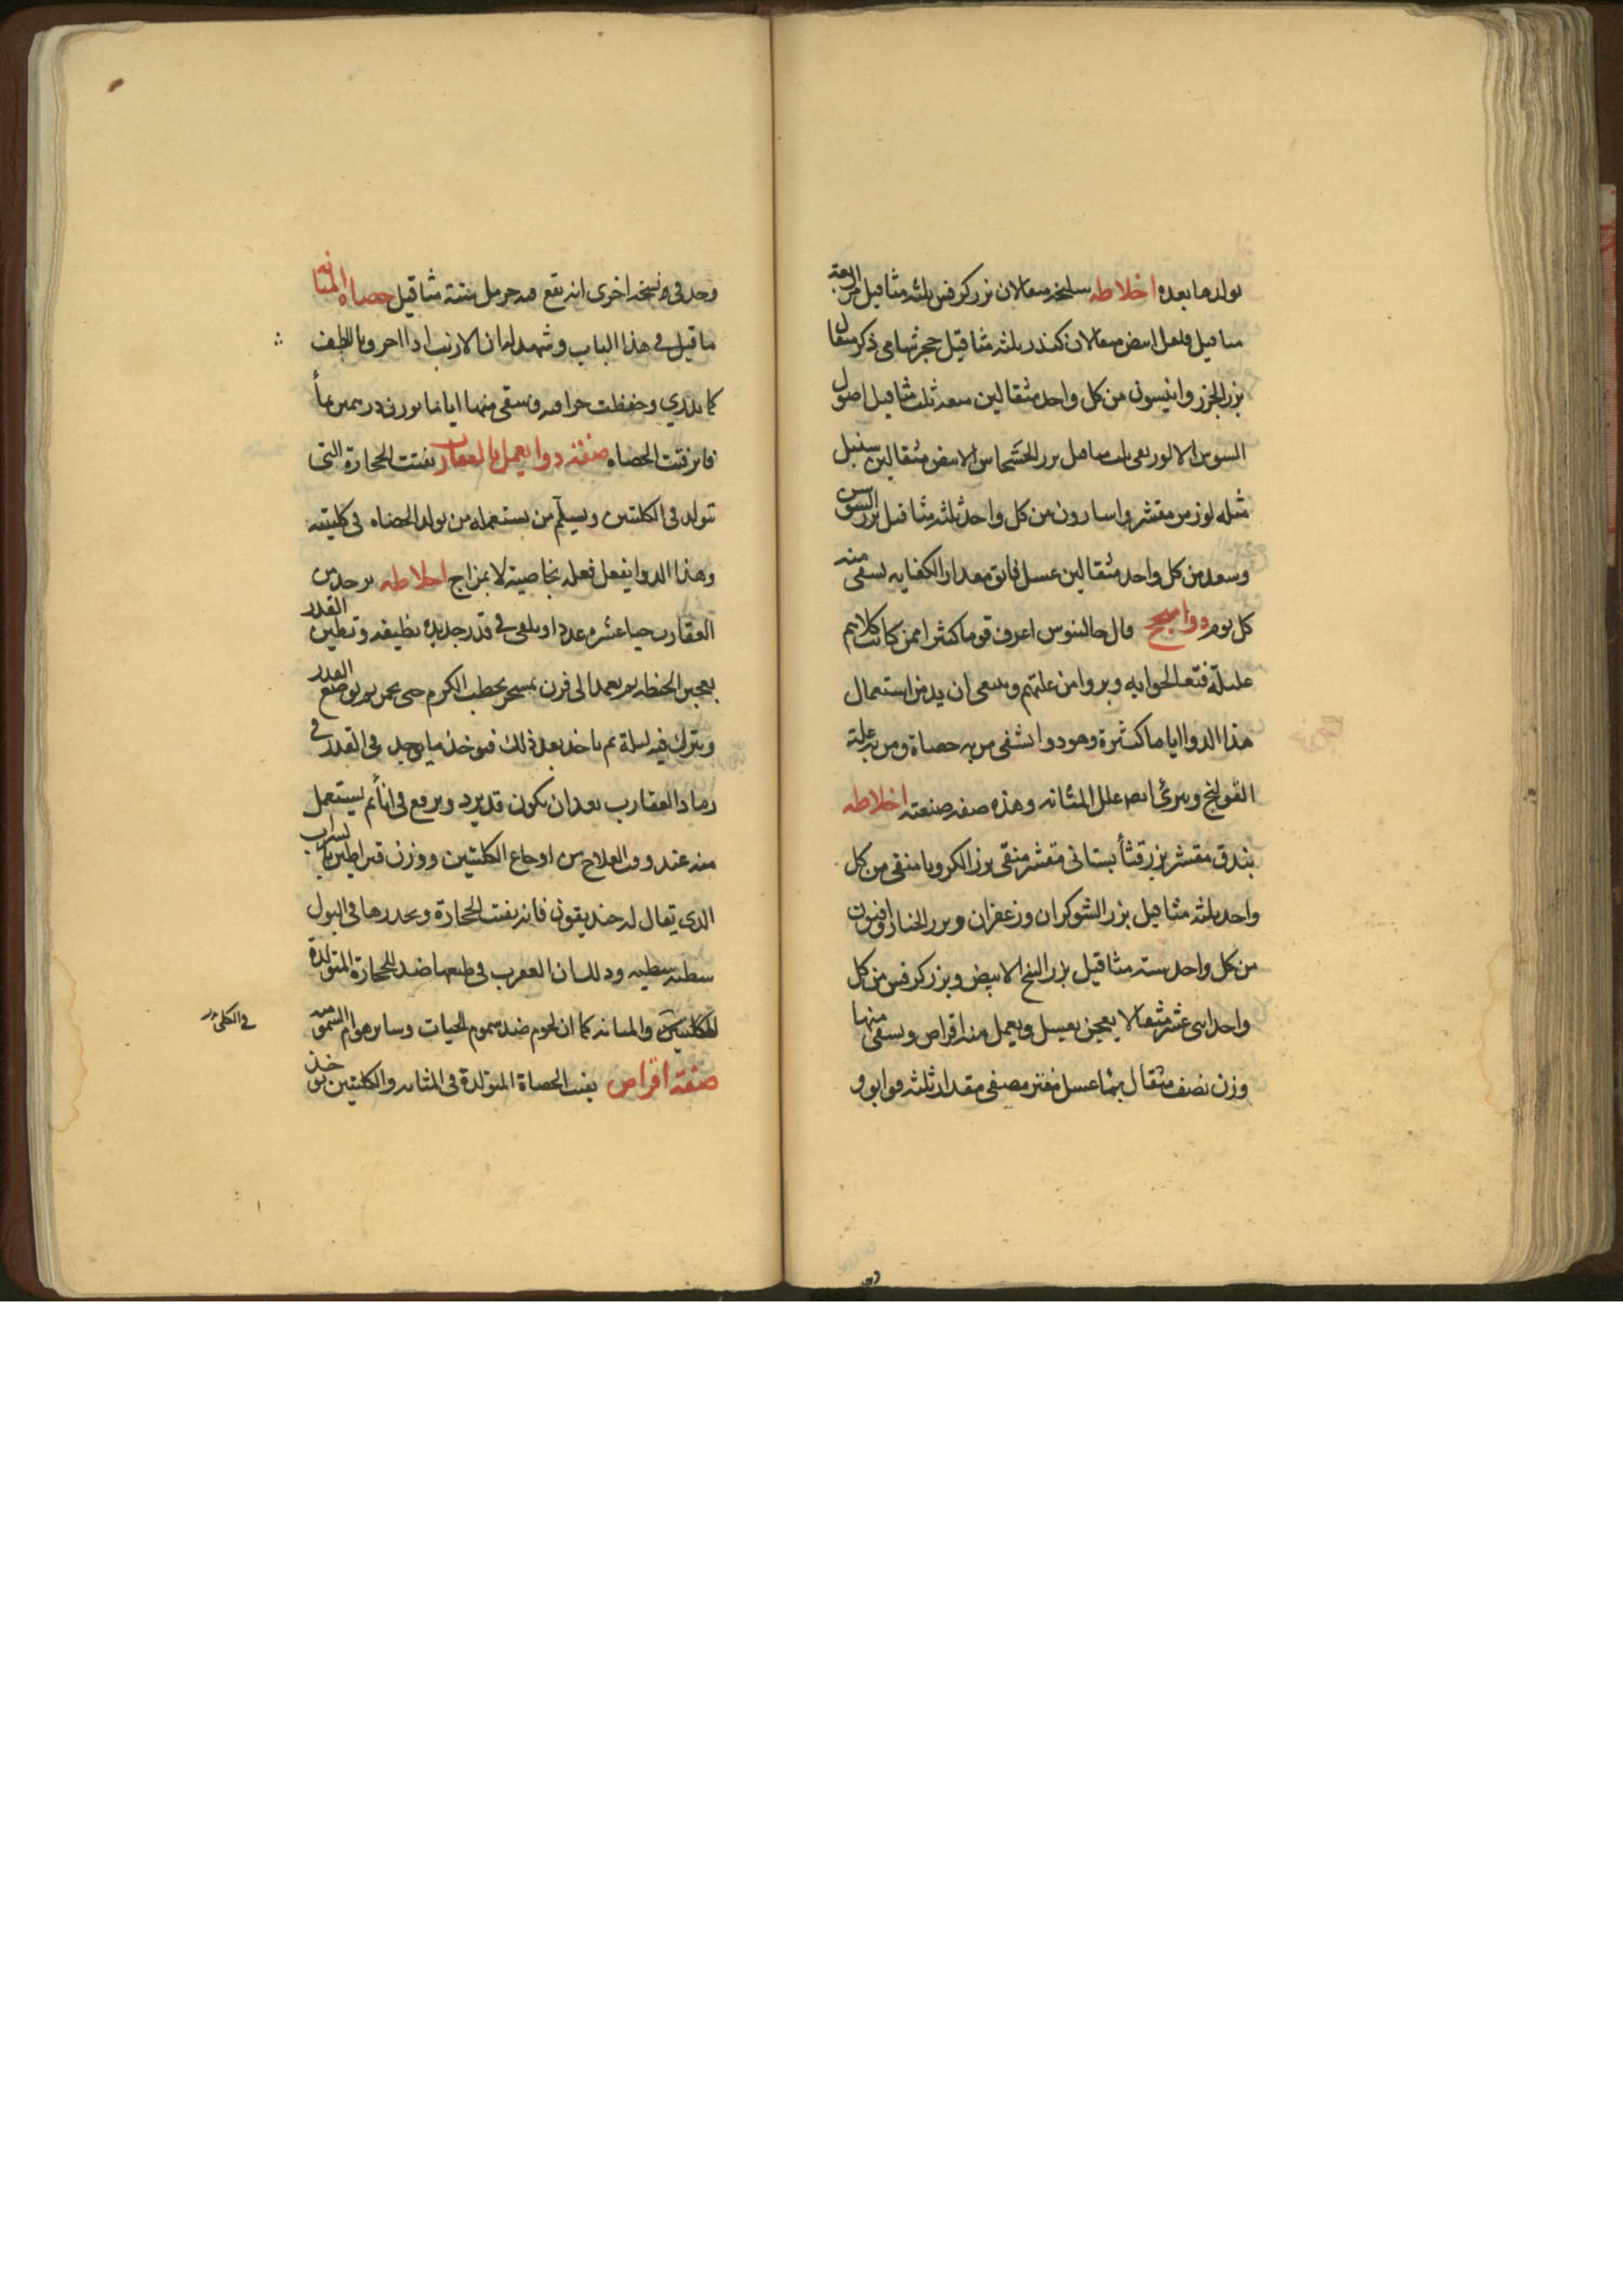 تولدها بعده اخلاطه سليخه مثقالان بزر كرفس ثلثه مثاقيل مر اربعة
مثاقيل فلفل ابيض مثقالان كندر ثلثه مثاقيل حجر شامى ذكر مثقال
بزر الجزر وانيسون من كل واحد مثقالين ميعه ثلث مثاقيل اصول
السوس مثاقيل بزر الخشخاش الابيض مثقالين سنبل
مثله لوز مر مقشر واسارون من كل واحد ثلثه مثاقيل بزر السوس
وسعد من كل واحد مثقالين عسل فايق مقدار الكفايه يسقى منه
كل يوم دوا قال جالينوس اعرف قوما كثيرا ممن كانت كلاهم
عليلة فتعالجوا به وبروا من علتهم وينبغى ان يدمن استعمال
هذا الدوا اياما كثيرة وهو دوا يشفى من به حصاة ومن به علة
القولنج ويبرئ علل المثانه وهذه صفه صنعته اخلاطه
بندق مقشر بزر قثأ بستانى مقشر منقى بزر الكرويا منقى من كل
واحد ثلثه مثاقيل بزر الشوكران وزعفران وبزر الخبازى وافيون
من كل واحد سته مثاقيل بزر البنج الابيض وبزر كرفس من كل
واحد اثنى عشر مثقالا يعجن بعسل ويعمل منه اقراص ويسقى منها
وزن نصف مثقال بمأ عسل مفتر مصفى مقدار ثلثه قوابوو
وجد فى نسخه اخرى انه يقع فيه حرمل ستة مثاقيل حصاه المثانه
ما قيل فى هذا الباب وشهد له ان الارنب اذا احرق بالطف
كما تدري وحفظت حراقته وسقى منها اياما بوزن درهمين بمأ
فاتر فتت الحصاه صفة دوا يعمل بالعقارب يفتت الحجارة التى
تتولد فى الكلتين ويسلم من يستعمله من تولد الحصاه فى كليتيه
وهذا الدوا يفعل فعله بخاصية لا بمزاج اخلاطه يوخذ من
العقارب حيا عشره عددا ويلقى فى قدر جديده نظيفه وتطين القدر
بعجين الحنطه ثم يعمد الى فرن يسجر بحطب الكرم حتى يحمى ثم يوضع القدر
ويترك فيه ليلة ثم ناخذ بعد ذلك فيوخذ ما يوجد فى القدر فى
رماد العقارب بعد ان يكون قد يبرد ويرفع فى انأ ثم يستعمل
منه عند وقت العلاج من اوجاع الكلتين ووزن قيراطين بشراب
الذى يقال له خنديقون فانه يفتت الحجارة ويحدرها فى البول
وذلك ان العقرب فى طبعها ضد للحجارة المتولدة
للكليتين والمثانه كما ان لحوم ضد سموم الحيات وساير هوام السموم
فى الكلى
صفة اقراص يفتت الحصاة المتولدة فى المثانه والكليتين يوخذ